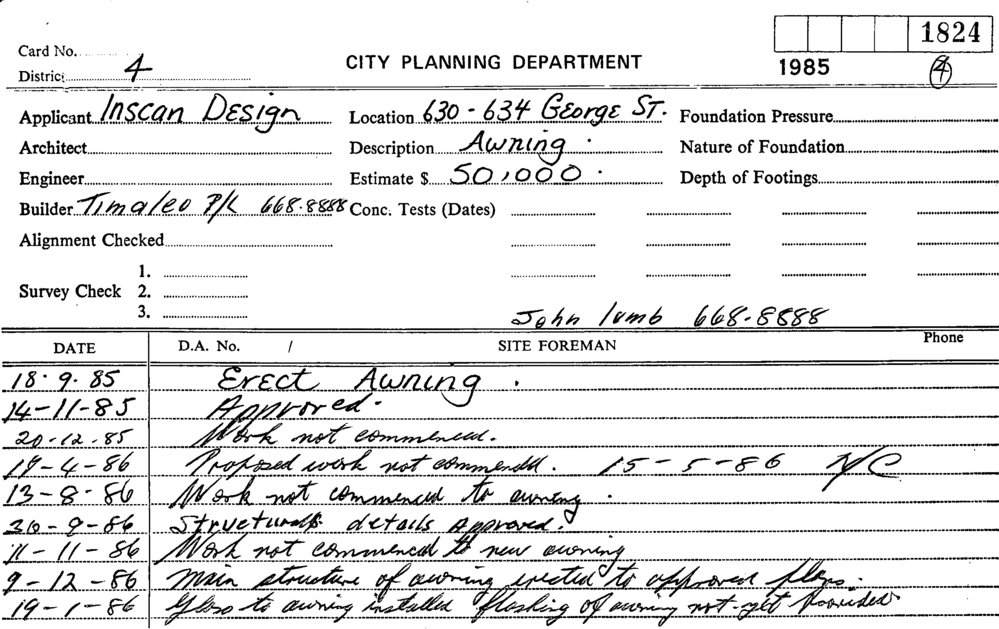 1824
Card No.
District 4
CITY PLANNING DEPARTMENT
1985
4
Applicant Inscan Design
Location 630-634 George St.
Foundation Pressure
Architect
Description Awning.
Nature of Foundation
Engineer
Estimate $ 50,000.
Depth of Footings
Builder Timaleo P/L 668.8888
Conc. Tests (Dates)
Alignment Checked
1.
Survey Check 2.
3.
John Lumb 668.8888
DATE D.A. No. / SITE FOREMAN Phone
18.9.85 Erect Awning.
14-11-85 Approved.
20-12-85 Work not commenced.
17-4-86 Proposed work not commencd. 15-5-86 N/C
13-8-86 Work not commenced to awning.
30-9-86 Structural details Approved.
11-11-86 Work not commenced to new awning
9-12-86 Main structure of awning erected to approved plans.
19-1-86 Glass to awning installed flashing of awning not yet provided